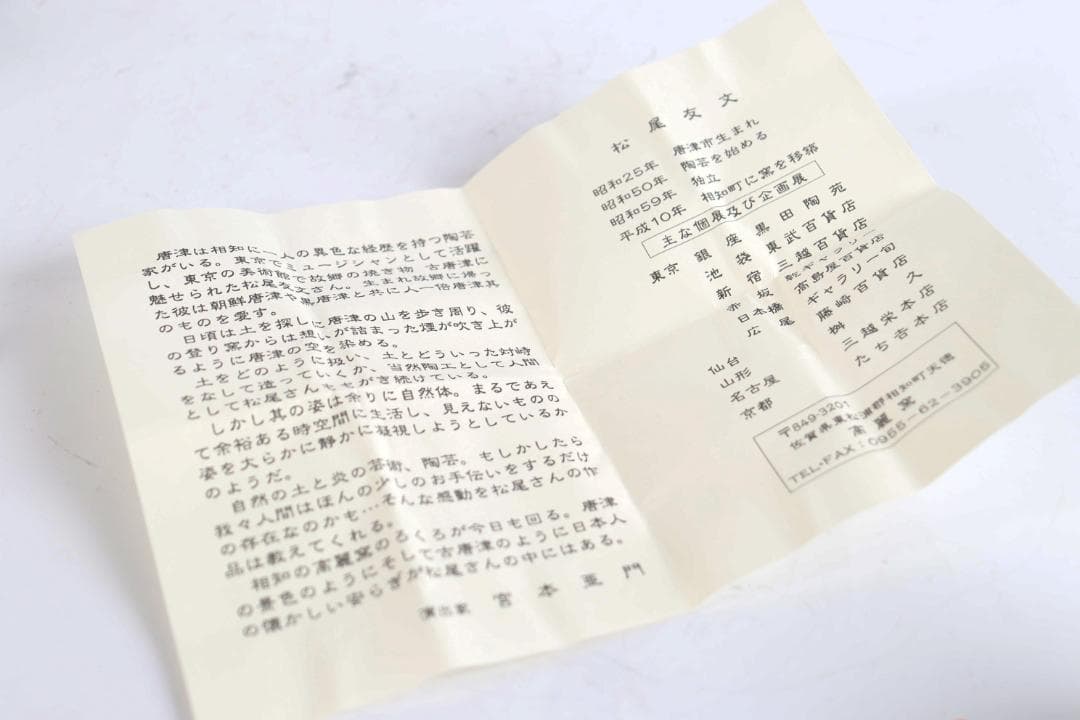 唐津は相知に一人の異色な経歴を持つ陶芸
家がいる。東京でミュージシャンとして活躍
し、東京の美術館で故郷の焼き物 古唐津に
魅せられた松尾友文さん。生まれ故郷に帰っ
た彼は朝鮮唐津や黒唐津と共に人一倍唐津其
のものを愛す。
日頃は土を探しに唐津の山を歩き周り、彼
の登り窯からは想いが詰まった煙が吹き上が
るように唐津の空を染める。
土をどのように扱い、土とどういった対峙
をなして造っていくか、当然陶工として人間
として松尾さんもせがき続けている。
しかし其の姿は余りに自然体。まるであえ
て余裕ある時空間に生活し、見えないものの
姿を大らかに静かに凝視しようとしているか
のようだ。
自然の土と炎の芸術、陶芸。もしかしたら
我々人間はほんの少しのお手伝いをするだけ
の存在なのかも…そんな感動を松尾さんの作
品は教えてくれる。
相知の高麗窯のろくろが今日も回る。唐津
の景色のようにそして古唐津のように日本人
の懐かしい安らぎが松尾さんの中にはある。
演出家 宮本亜門
松尾友文
昭和25年 唐津市生まれ
昭和50年 陶芸を始める
昭和59年 独立
平成10年 相知町に窯を移築
主な個展及び企画展
東京 銀座黒田陶苑
池袋東武百貨店
新宿三越百貨店
赤坂乾ギャラリー
日本橋高島屋百貨店
広尾ギャラリー旬
仙台 藤崎百貨店
山形 桝久
名古屋 三越栄本店
京都 たち吉本店
〒849-3201
佐賀県東松浦郡相知町天徳
高麗窯
TEL・FAX:0955-62-3905